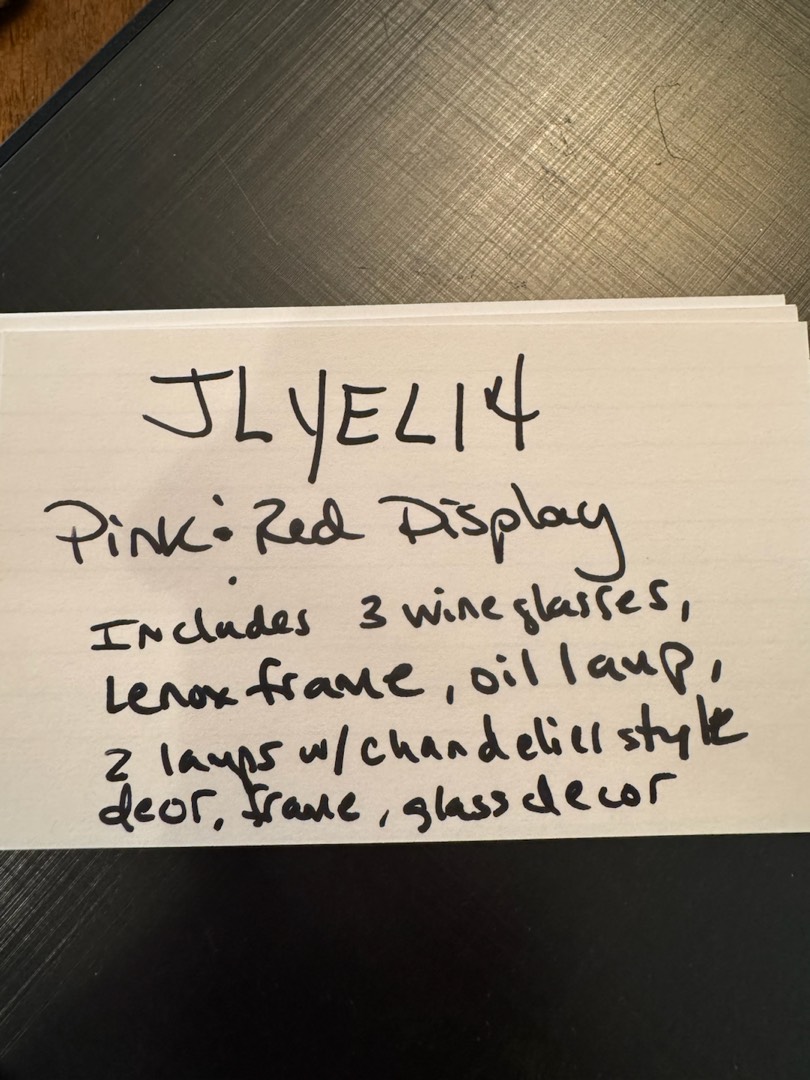 JLYEL14
Pink: Red Display
Includes 3 wine glasses,
Lenox frame, oil lamp,
2 lamps w/ chandelier style
decor, frame, glass decor